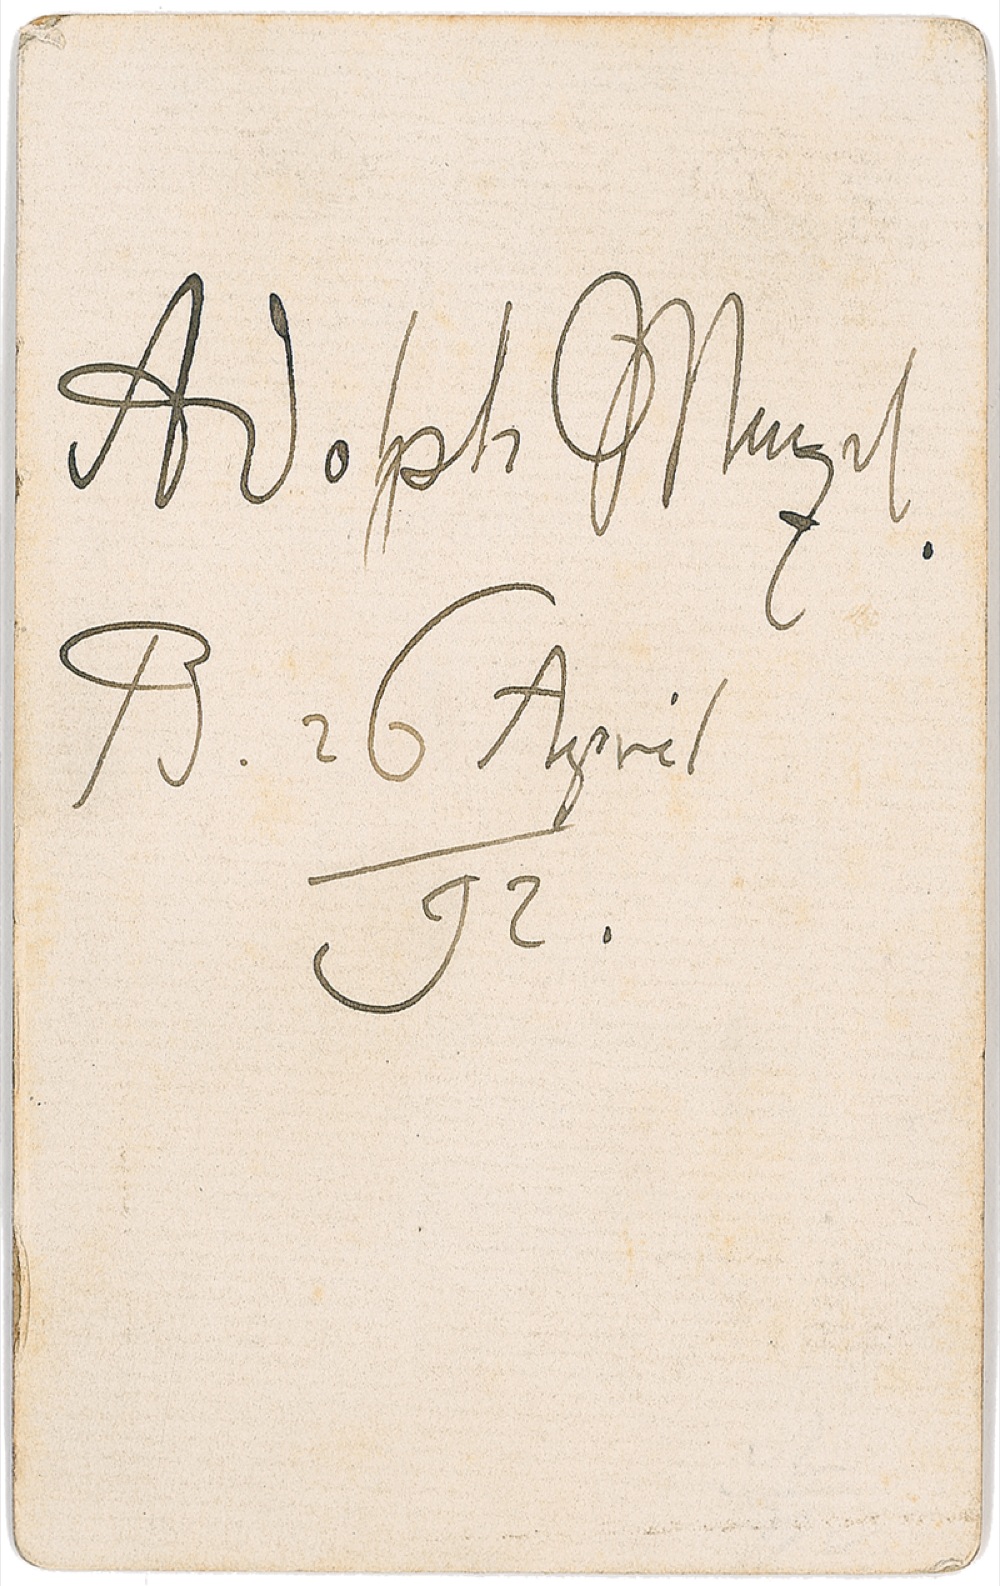 Adolph Menzel.
B. 26 April
92.